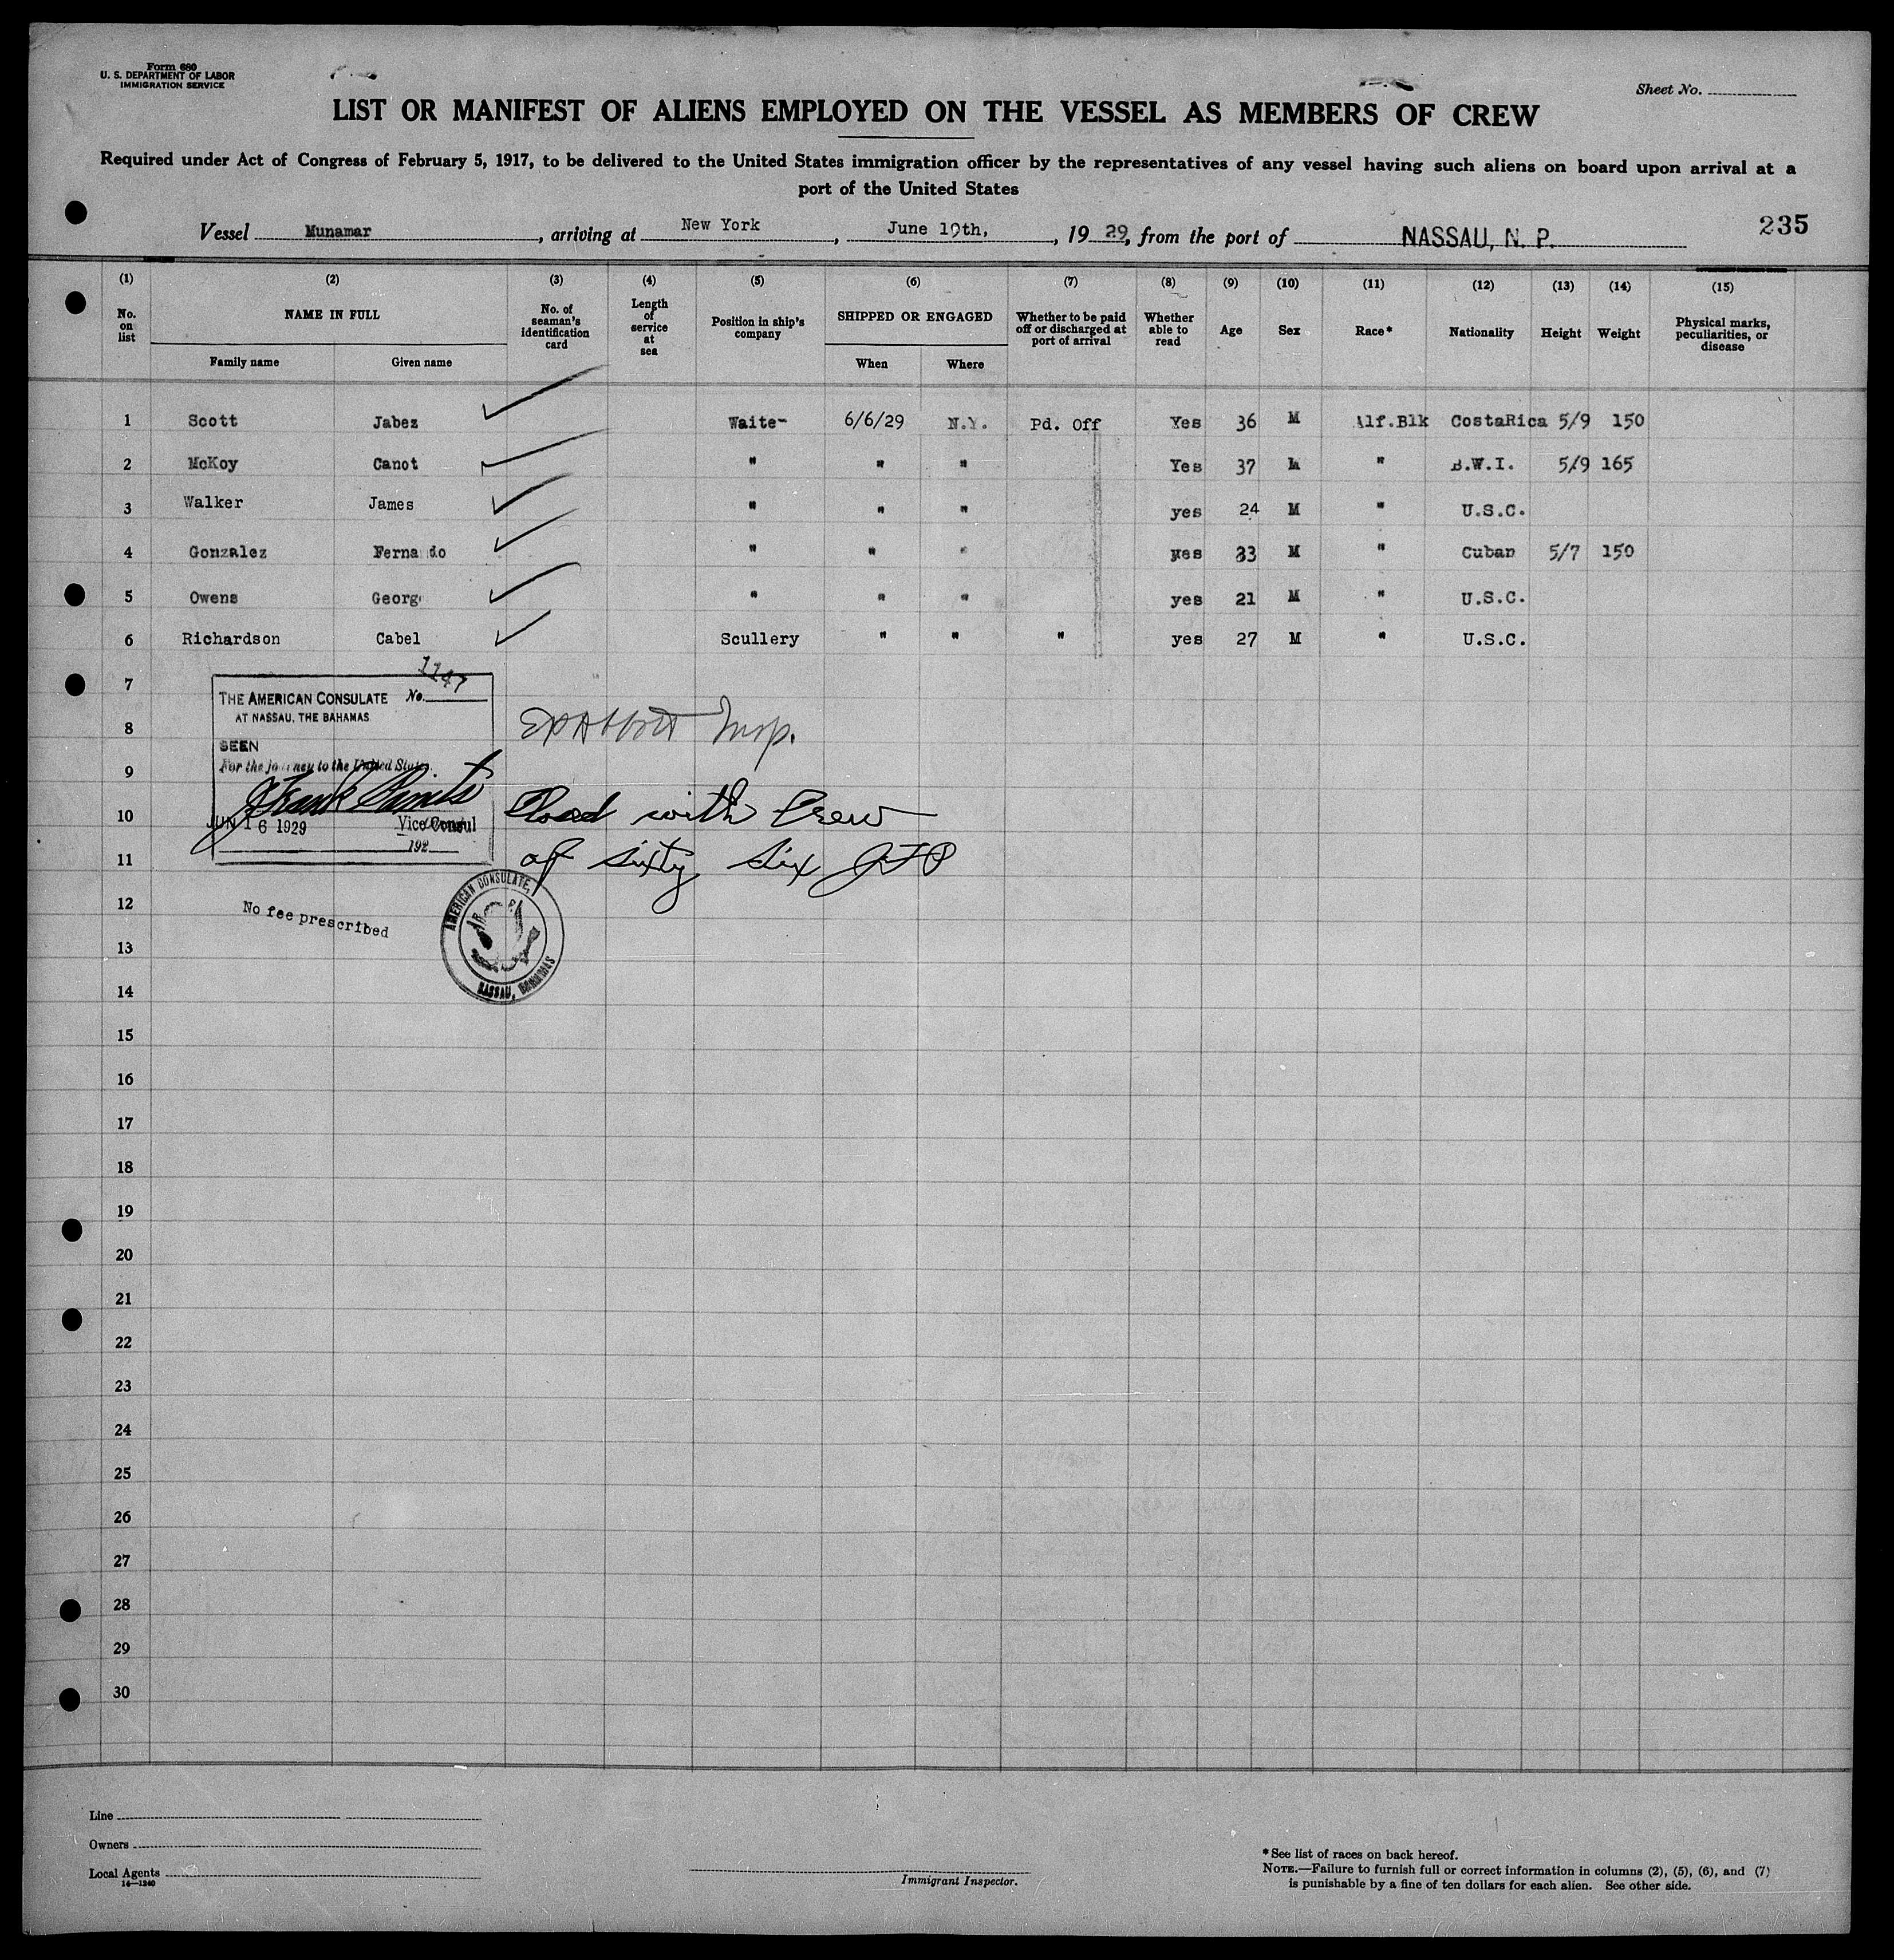 Form 680
U. S. DEPARTMENT OF LABOR
IMMIGRATION SERVICE
Sheet No.
LIST OR MANIFEST OF ALIENS EMPLOYED ON THE VESSEL AS MEMBERS OF CREW
Required under Act of Congress of February 5, 1917, to be delivered to the United States immigration officer by the representatives of any vessel having such aliens on board upon arrival at a
port of the United States
235
Vessel Munamar, arriving at New York, June 19th, 1929, from the port of NASSAU, N. P.
(1) (2) (3) (4) (5) (6) (7) (8) (9) (10) (11) (12) (13) (14) (15)
No. on list NAME IN FULL Family name Given name No. of seaman's identification card Length of service at sea Position in ship's company SHIPPED OR ENGAGED When Where Whether to be paid off or discharged at port of arrival Whether able to read Age Sex Race* Nationality Height Weight Physical marks, peculiarities, or disease
1 Scott Jabez Waite- 6/6/29 N.Y. Pd. Off Yes 36 M Alf.Blk CostaRica 5/9 150
2 McKoy Canot " " " Yes 37 M " B.W.I. 5/9 165
3 Walker James " " " yes 24 M " U.S.C.
4 Gonzalez Fernando " " " yes 33 M " Cuban 5/7 150
5 Owens Georg " " " yes 21 M " U.S.C.
6 Richardson Cabel Scullery " " " yes 27 M " U.S.C.
7
8
9
10
11
12
13
14
15
16
17
18
19
20
21
22
23
24
25
26
27
28
29
30
THE AMERICAN CONSULATE No. 1147
AT NASSAU, THE BAHAMAS
SEEN
For the journey to the United States.
JUN 16 1929 Vice Consul
192
Insp.
with Crew
of sixty six JFP
No fee prescribed
AMERICAN CONSULATE,
NASSAU, BAHAMAS
Line
Owners
Local Agents
14—1240
Immigrant Inspector.
*See list of races on back hereof.
NOTE.—Failure to furnish full or correct information in columns (2), (5), (6), and (7)
is punishable by a fine of ten dollars for each alien. See other side.